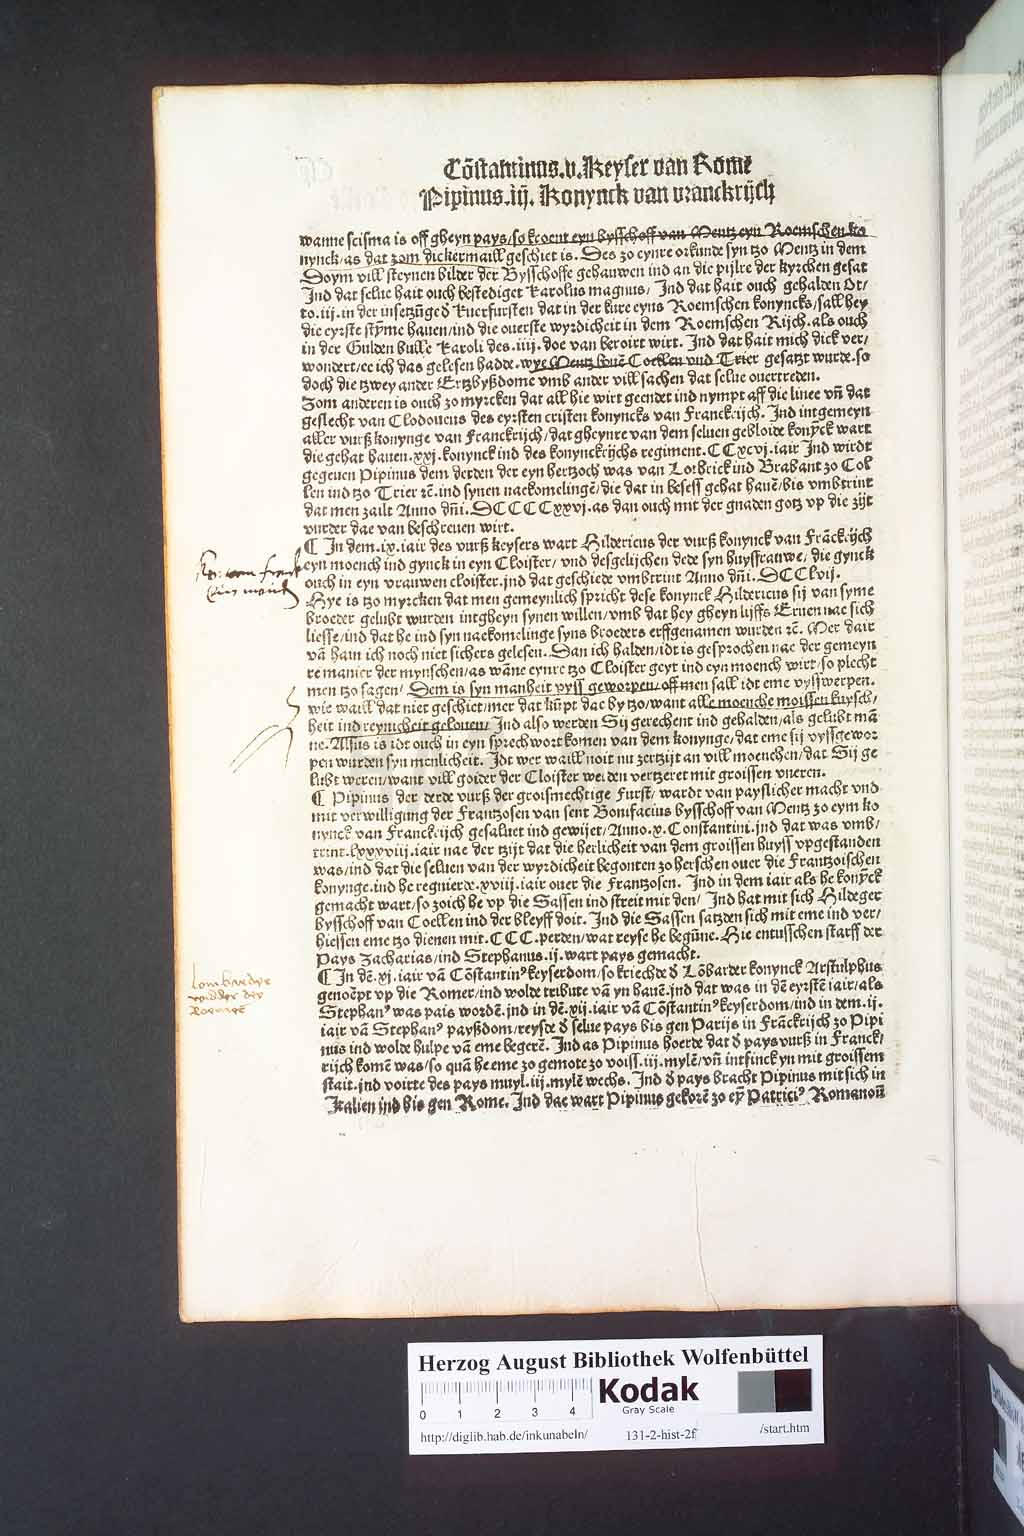 Cōstantinus.v.Keyser van Rome
Pipinus.iij. Konynck van vranckrijch
wanne scisma is off gheyn pays/so kroent eyn bysschoff van Mentz eyn Roemschen ko
nynck/as dat zom dickermaill geschiet is. Des zo eynre orkunde syn tzo Mentz in dem
Doym vill steynen bilder der Bysschoffe gehauwen ind an die pijlre der kyrchen gesat
Ind dat selue hait ouch bestediget Karolus magnus/ Ind dat hait ouch gehalden Ot/
to.iij.in der insetzūge đ Kuerfursten dat in der kure eyns Roemschen konyncks/sall hey
die eyrste stȳme hauen/ind die ouerste wyrdicheit in dem Roemschen Rijch.als ouch
in der Gulden bulle Karoli des.iiij.doe van beroirt wirt. Ind dat hait mich dick ver/
wondert/ee ich das gelesen hadde.wye Mentz bouē Coellen vnd Trier gesatzt wurde.so
doch die tzwey ander Ertzbyßdome vmb ander vill sachen dat selue ouertreden.
Zom anderen is ouch zo myrcken dat all hie wirt geendet ind nympt aff die linee vñ dat
geslecht van Clodoueus des eyrsten cristen konyncks van Franckrijch. Ind intgemeyn
aller vurß konynge van Franckrijch/dat gheynre van dem seluen gebloide konȳck wart
die gehat hauen.xxj.konynck ind des konynckrijchs regiment.CCxcvj.iair Ind wirdt
gegeuen Pipinus dem derden der eyn hertzoch was van Lotbrick ind Brabant zo Col
len ind tzo Trier ꝛč.ind synen nackomelingē/die dat in besess gehat hauē/bis vmbtrint
dat men zailt Anno dñi.DCCCCxxvj.as dan ouch mit der gnaden gotz vp die zijt
vurder dae van beschreuen wirt.
¶ In dem.ix.iair des vurß keysers wart Hildericus der vurß konynck van Frāckrijch
eyn moench ind gynck in eyn Cloister/ vnd desgelijchen dede syn huysfrauwe/ die gynck
ouch in eyn vrauwen cloister.jnd dat geschiede vmbtrint Anno dñi.DCClvij.
Hye is tzo myrcken dat men gemeynlich spricht dese konynck Hildericus sij van syme
broeder gelubt wurden intgheyn synen willen/vmb dat hey gheyn lijffs Eruen nae sich
liesse/ind dat he ind syn nackomelinge syns broeders erffgenamen wurden ꝛč. Mer dair
vā hain ich noch niet sichers gelesen. Dan ich halden/idt is gesprochen nae der gemeyn
re manier der mynschen/as wāne eynre tzo Cloister geyt ind eyn moench wirt/so plecht
men tzo sagen/ Dem is syn manheit vyss geworpen/off men sall idt eme vyss werpen.
wie waill dat niet geschiet/mer dat kūpt dae by tzo/want alle moenche moissen kuysch/
heit ind reynicheit gelouen/ Ind also werden Sij gerechent ind gehalden/als gelubt mā
ne. Alsus is idt ouch in eyn sprechwort komen van dem konynge/dat eme sij vyssgewor
pen wurden syn menlicheit. Idt wer waill noit nu zertzijt an vill moenchen/dat Sij ge
lubt weren/want vill goider der Cloister werden vertzeret mit groissen vneren.
¶ Pipinus der derde vurß der groismechtige Furst/ wardt van payslicher macht vnd
mit verwilligung der Frantzosen van sent Bonifacius bysschoff van Mentz zo eym ko
nynck van Franckrijch gesaluet ind gewijet/Anno.x.Constantini.jnd dat was vmb/
trint.lxxxviij.iair nae der tzijt dat die herlicheit van dem groissen huyss vpgestanden
was/ind dat die seluen van der wyrdicheit begonten zo herschen ouer die Frantzoischen
konynge.ind he regnierde.xviij.iair ouer die Frantzosen. Ind in dem iair als he konȳck
gemacht wart/so zoich he vp die Sassen ind streit mit den/ Ind hat mit sich Hildeger
bysschoff van Coellen ind der bleyff doit. Ind die Sassen satzden sich mit eme ind ver/
hiessen eme tzo dienen mit.CCC.perden/wat reyse he begūne. Hie entusschen starff der
Pays Zacharias/ind Stephanus.ij.wart pays gemacht.
¶ In dē.xj.iair vā Cōstantinꝰ keyserdom/so kriechde đ Lōbarder konynck Arstulphus
genoēpt vp die Romer/ind wolde tribute vā yn hauē.jnd dat was in dē eyrstē iair/als
Stephanꝰ was pais wordē.jnd in dē.xij.iair vā Cōstantinꝰ keyserdom/ind in dem.ij.
iair vā Stephanꝰ payßdom/reysde đ selue pays bis gen Parijs in Frāckrijch zo Pipi
nus ind wolde hulpe vā eme begerē. Ind as Pipinus hoerde dat đ pays vurß in Franck/
rijch komē was/so quā he eme zo gemote zo voiss.iij.mylē/vñ intfinck yn mit groissem
stait.jnd voirte des pays muyl.iij.mylē wechs. Ind đ pays bracht Pipinus mit sich in
Italien ind bis gen Rome. Ind dae wart Pipinus gekorē zo eȳ Patriciꝰ Romanoū
Herzog August Bibliothek Wolfenbüttel
0 1 2 3 4
Kodak
Gray Scale
http://diglib.hab.de/inkunabeln/ 131-2-hist-2f /start.htm